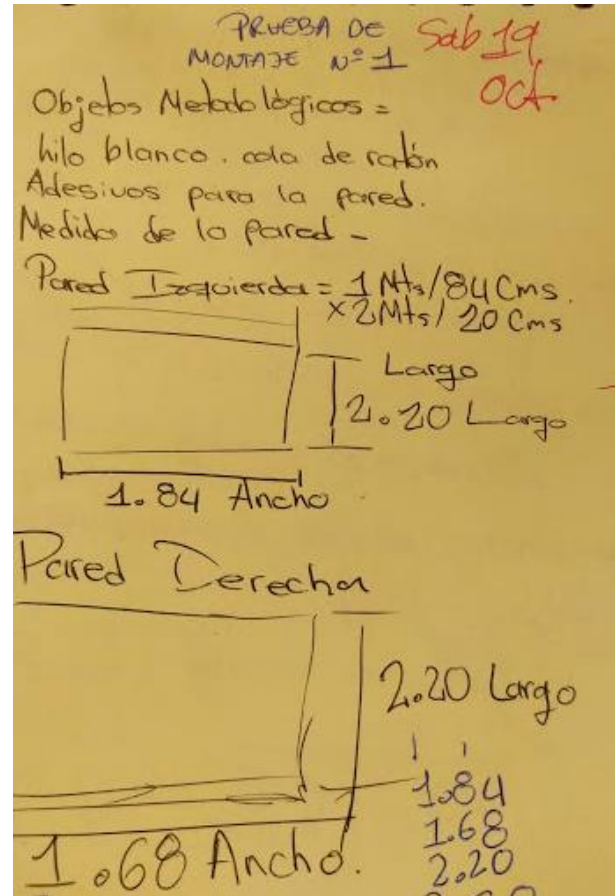 PRUEBA DE
MONTAJE Nº 1
Sab 19
Oct.
Objetos Metodológicos =
hilo blanco. cola de ratón
Adesivos para la pared.
Medida de la pared -
Pared Izquierda = 1 Mts/84 Cms.
x 2 Mts/ 20 Cms
Largo
2.20 Largo
1.84 Ancho
Pared Derecha
2.20 Largo
1.84
1.68
2.20
1.68 Ancho.